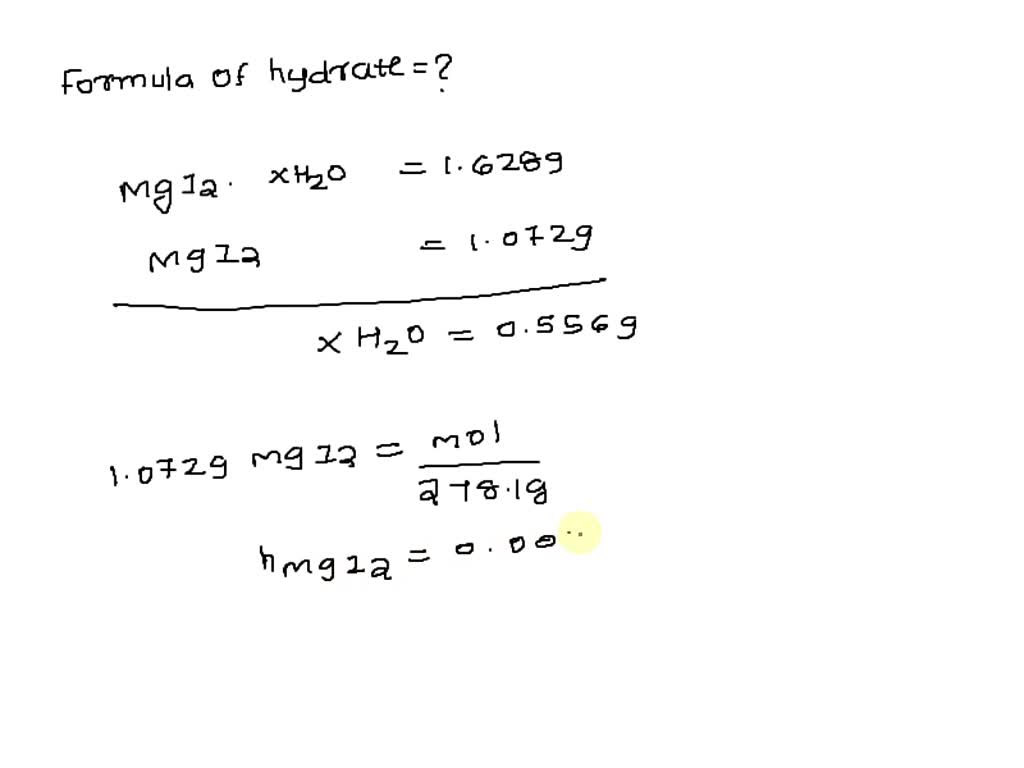 Formula of hydrate = ?
MgI2. xH2O = 1.628g
MgI2 = 1.072g
x H2O = 0.556g
1.072g MgI2 = mol / 278.1g
nMgI2 = 0.00